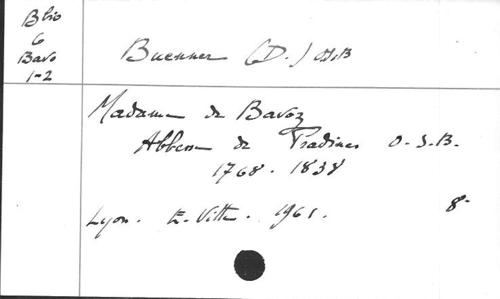 Bbio
6
Bavo
1-2
Buenner (D.) OSB
Madame de Bavoz
Abbesse de Pradines O.S.B.
1768 - 1838
Lyon. E. Vitte. 1961. 8°